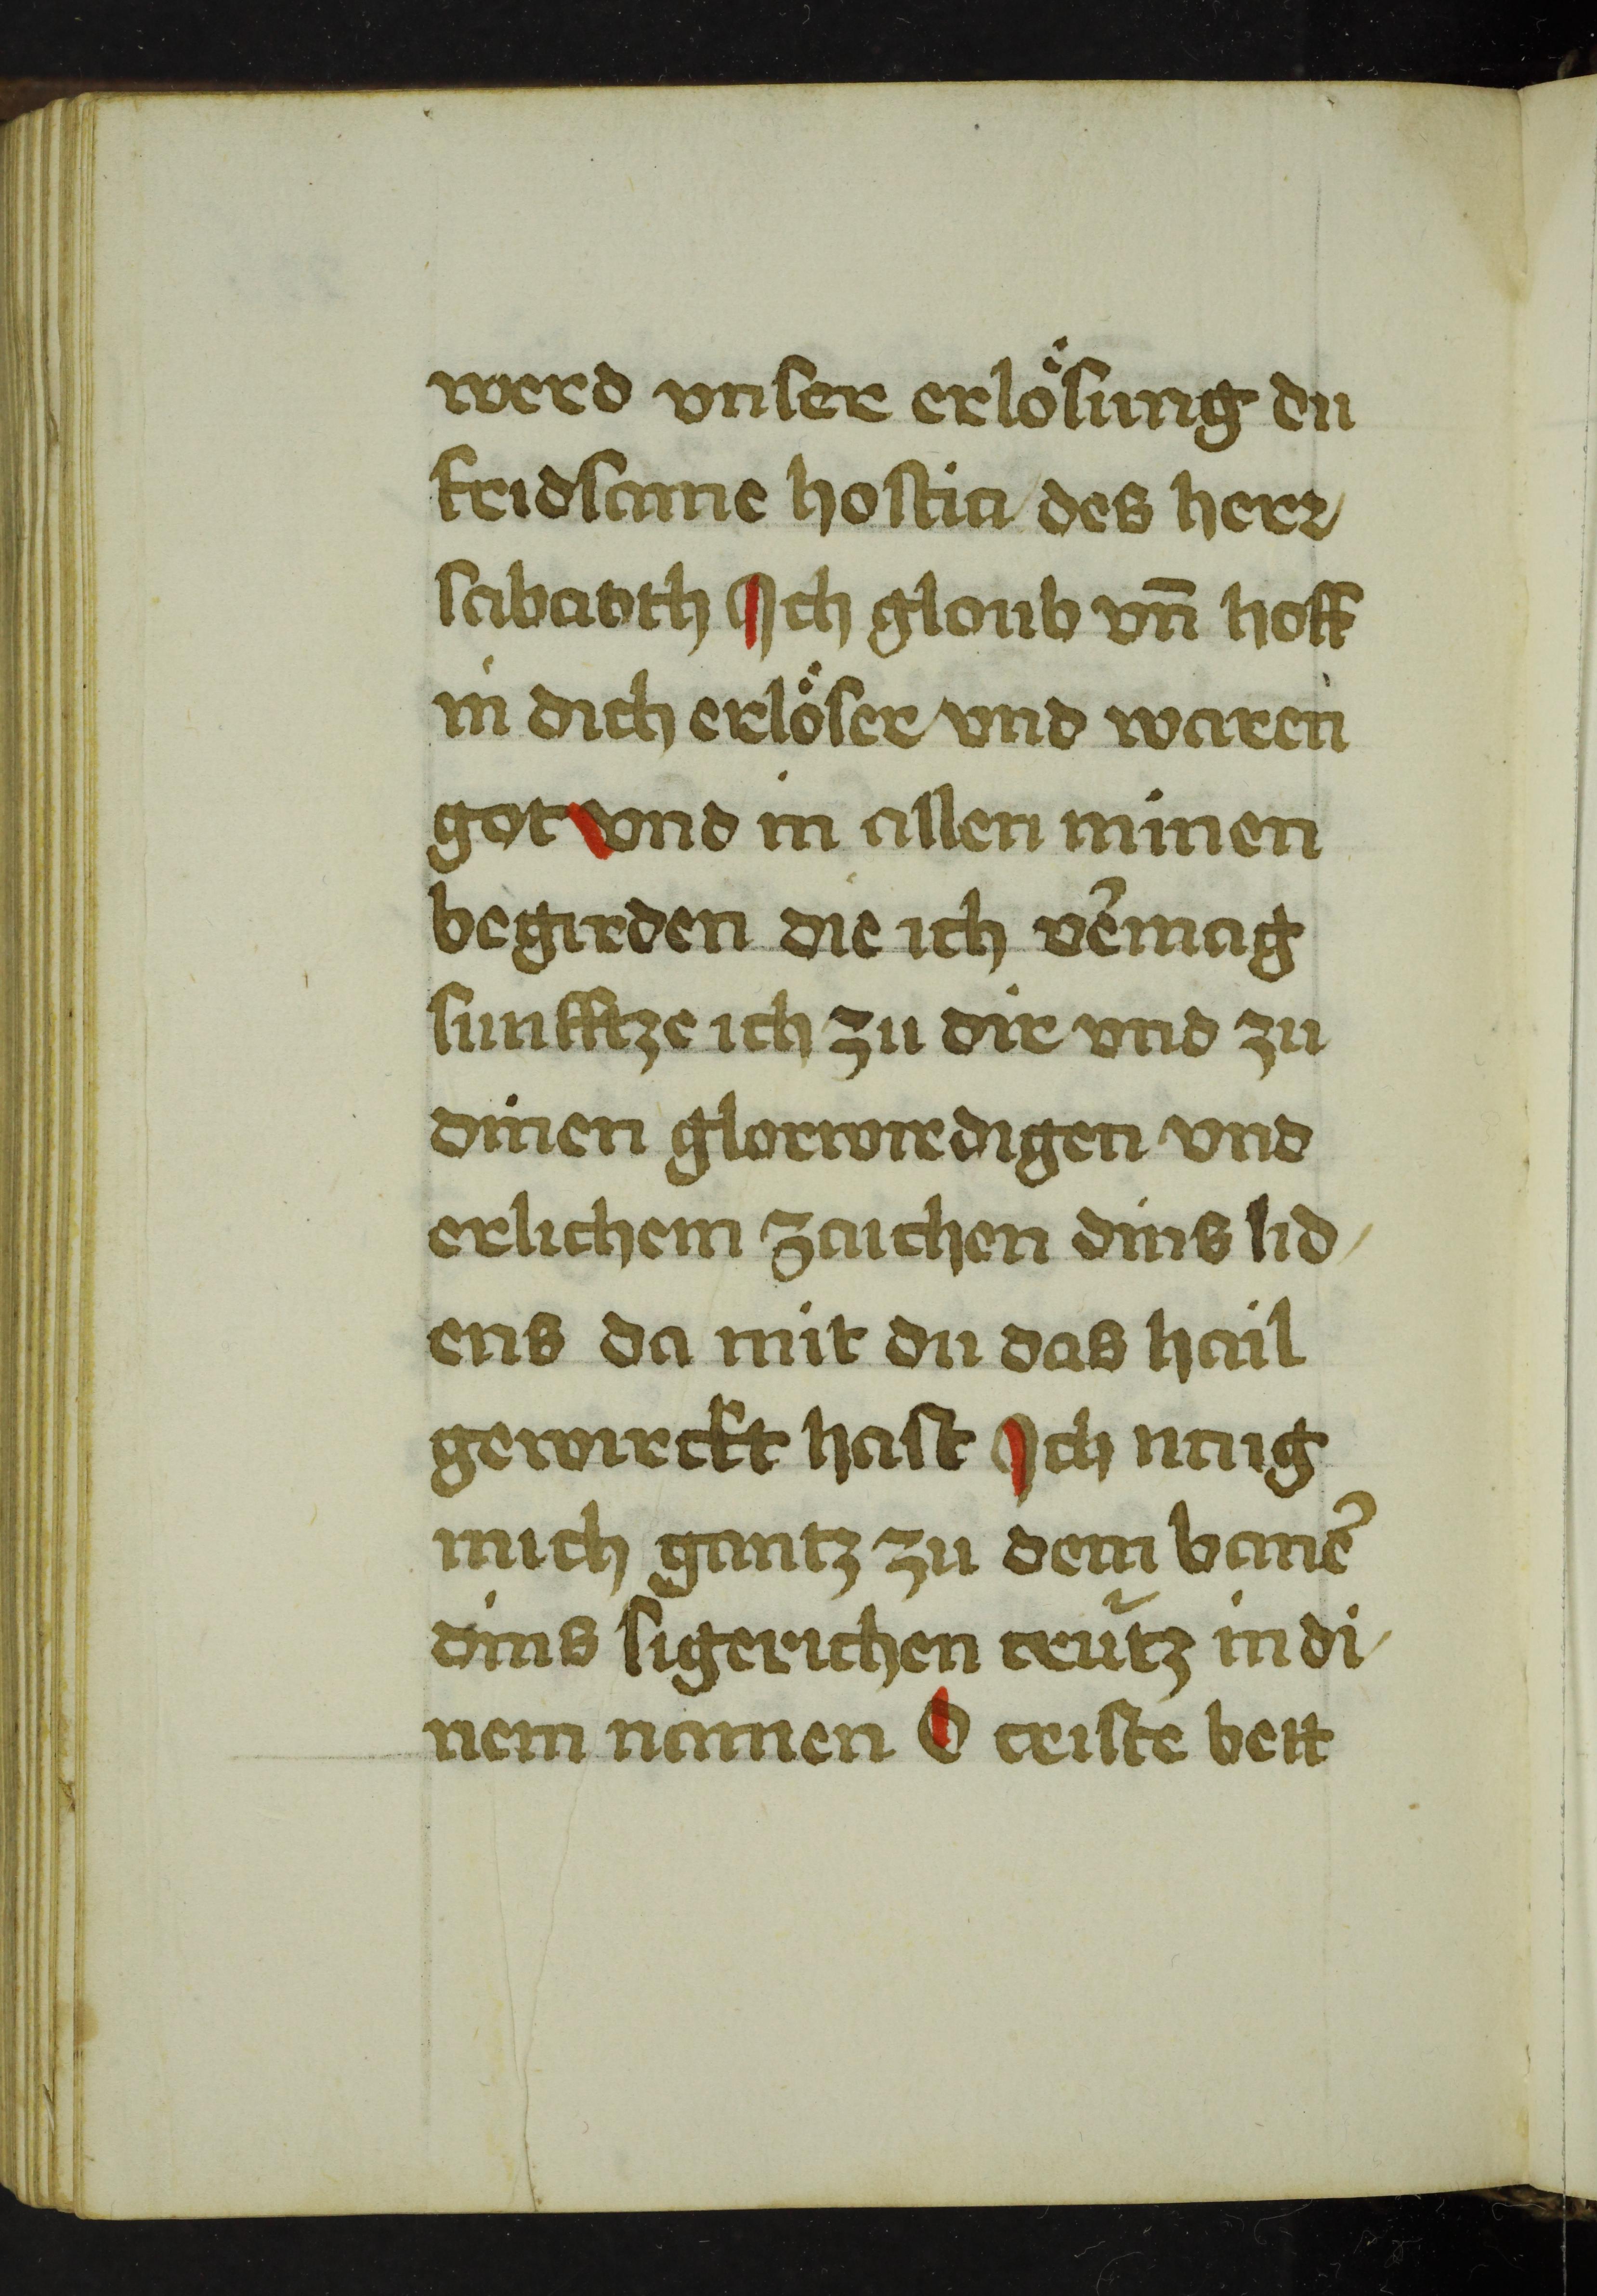 werd vnser erlösung du
fridsame hostia des herz
sabaoth Ich gloub vn̄ hoff
in dich erlöser vnd waren
got vnd in allen minen
begirden die ich v͛mag
sunfftze ich zu dir vnd zu
dinen glorwirdigen vnd
erlichem zaichen dins lid
ens da mit du das hail
gewirckt hast Ich naig
mich gantz zu dem bane͛
dins sigerichen crütz in di
nem namen O criste bett